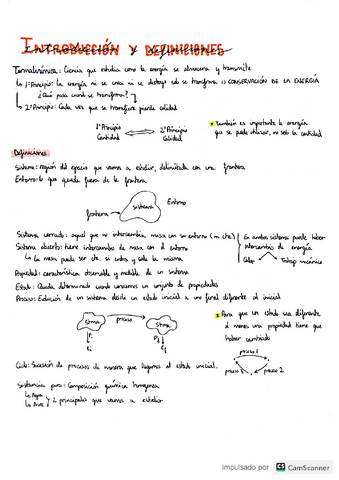 INTRODUCCIÓN Y DEFINICIONES
Termodinámica: Ciencia que estudia como la energía se almacena y transmite
↳ 1º Principio: la energía ni se crea ni se destruye solo se transforma ⇒ CONSERVACIÓN DE LA ENERGÍA
¿Qué pasa cuando se transforma?
↳ 2º Principio: Cada vez que se transfiere pierde calidad
1º Principio ⟺ 2º Principio
Cantidad Calidad
* También es importante la energía
que se puede utilizar, no solo la cantidad
Definiciones
Sistema: región del espacio que vamos a estudiar, delimitada con una frontera
Entorno: lo que queda fuera de la frontera
sistema
Entorno
frontera
Sistema cerrado: aquel que no intercambia masa con su entorno (m cte)
Sistema abierto: tiene intercambio de masa con el entorno
↳ la masa puede ser cte. si entra y sale la misma
En ambos sistemas puede haber
intercambio de energía
Calor Trabajo mecánico
Propiedad: característica observable y medible de un sistema
Estado: Queda determinado cuando conocemos un conjunto de propiedades
Proceso: Evolución de un sistema desde un estado inicial a uno final diferente al inicial
proceso
* Para que un estado sea diferente
al menos una propiedad tiene que
haber cambiado
Ciclo: Sucesión de procesos de manera que llegamos al estado inicial.
proceso 1
proceso 2
Sustancia pura: Composición química homogénea
↳ Agua
↳ Aire
2 principales que vamos a estudiar
Impulsado por CS CamScanner